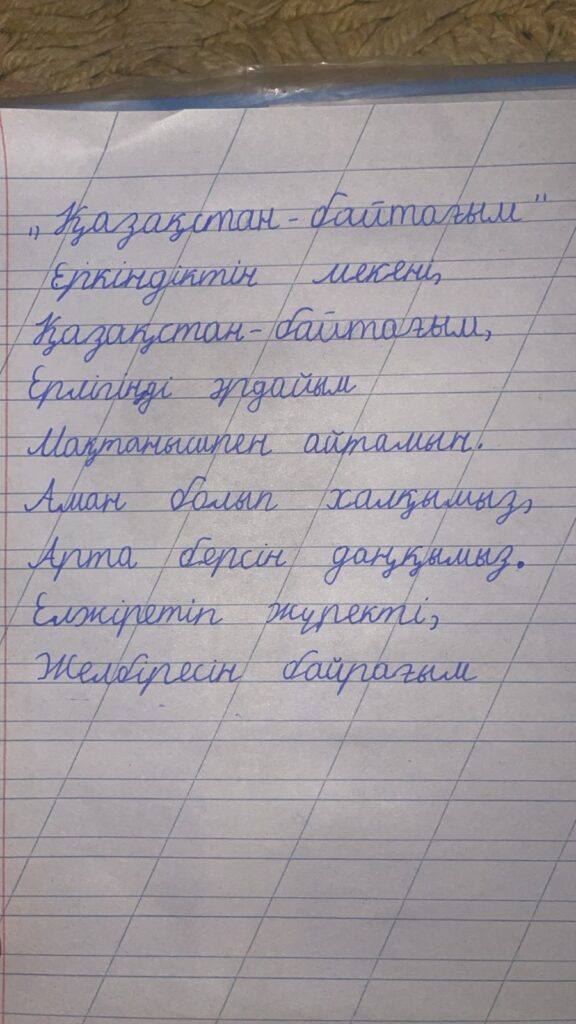 „Қазақстан-байтағым"
Еркіндіктін мекені,
Қазақстан-байтағым,
Ерлігінді әрдайым
Мақтанышпен айтамын.
Аман болып халқымыз,
Арта берсін даңқымыз.
Елжіретіп жүректі,
Желбіресін байрағым